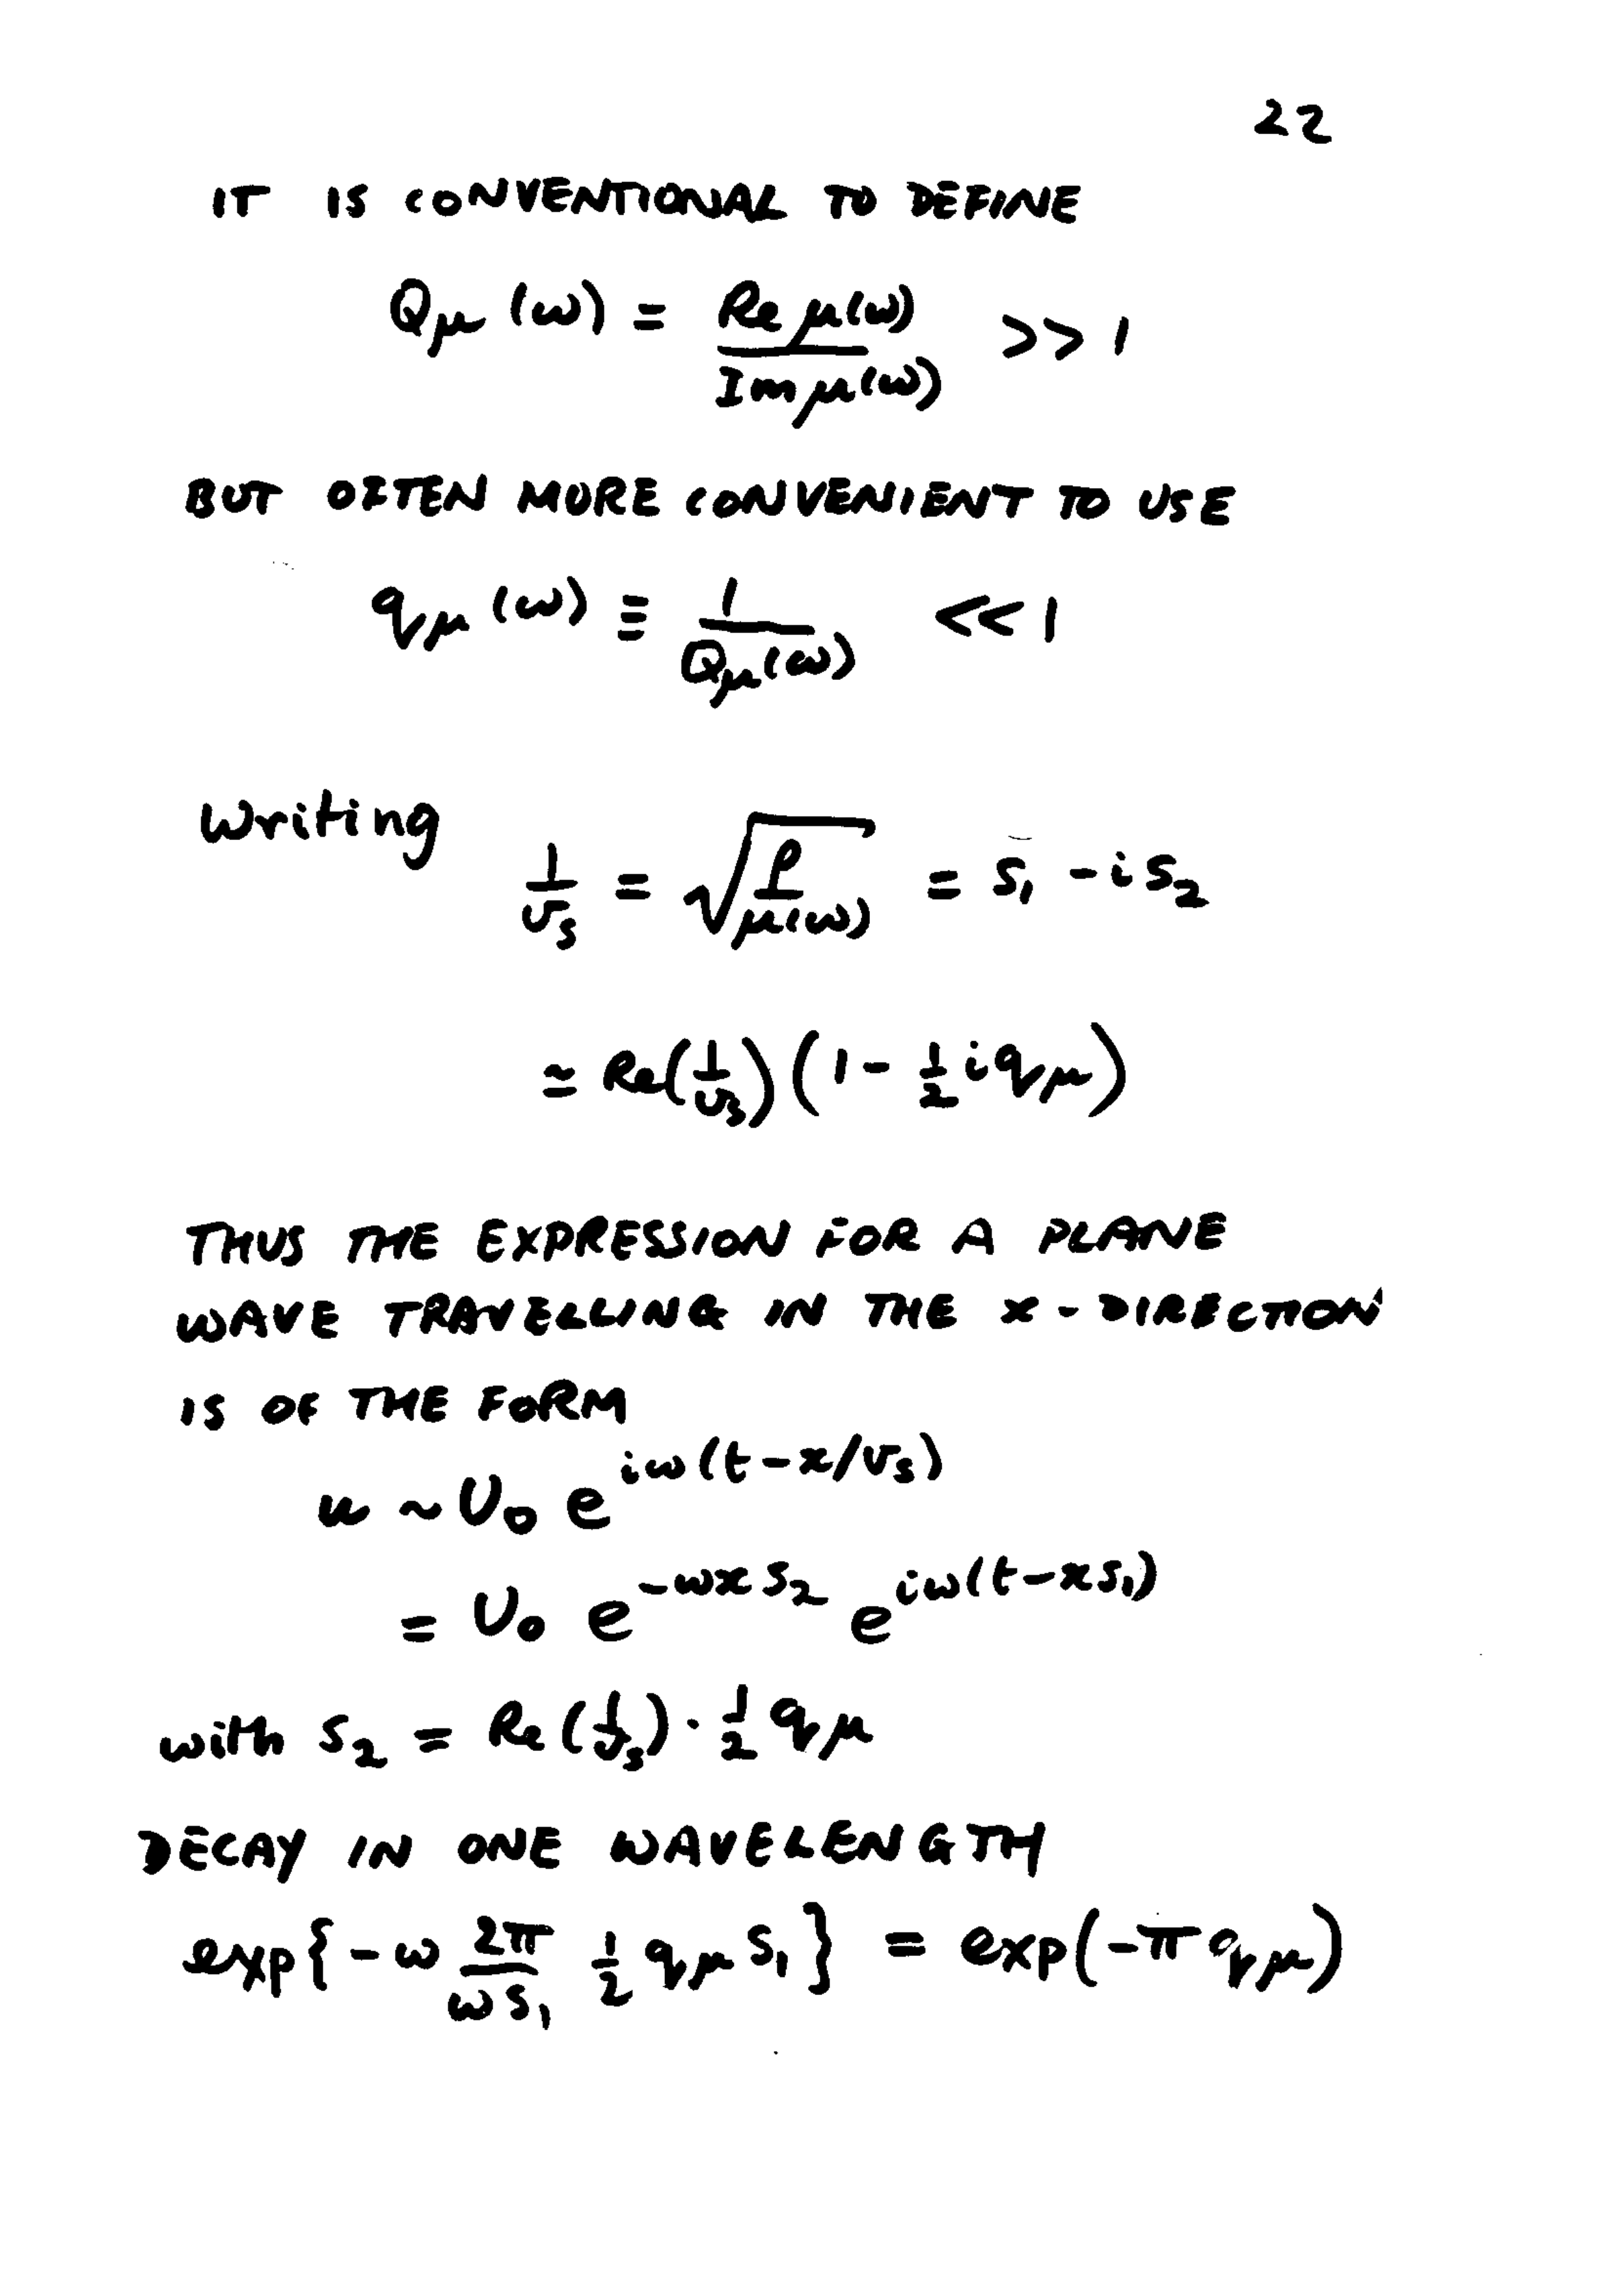 22
IT IS CONVENTIONAL TO DEFINE
Qμ(ω) = Re μ(ω) / Im μ(ω) >> 1
BUT OFTEN MORE CONVENIENT TO USE
qμ(ω) ≡ 1 / Qμ(ω) << 1
Writing
1/υs = √(ρ/μ(ω)) = s₁ - i s₂
≃ Re(1/υs)(1 - ½ i qμ)
THUS THE EXPRESSION FOR A PLANE
WAVE TRAVELLING IN THE x-DIRECTION
IS OF THE FORM
u ~ U₀ e^{iω(t-x/υs)}
= U₀ e^{-ωx s₂} e^{iω(t-xs₁)}
with s₂ = Re(1/υs) · ½ qμ
DECAY IN ONE WAVELENGTH
exp{-ω 2π/ωs₁ ½ qμ s₁} = exp(-π qμ)